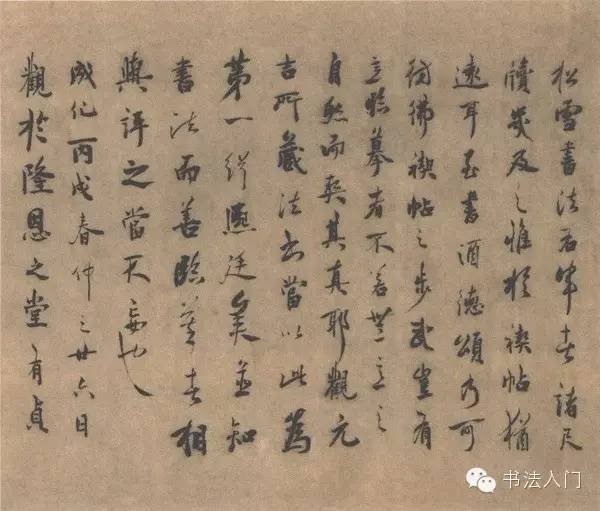 松雪書法右軍書諸尺
牘幾及之惟於禊帖猶
遠耳至書酒德頌乃可
彷彿禊帖之步武豈有
意臨摹者不若無意之
自然而契其真耶觀元
吉所藏法書當以此為
第一徐熙廷矣並知
書法而善臨者相
與評之當不妄也
成化丙戌春仲之廿六日
觀於隆恩之堂有貞
书法入门